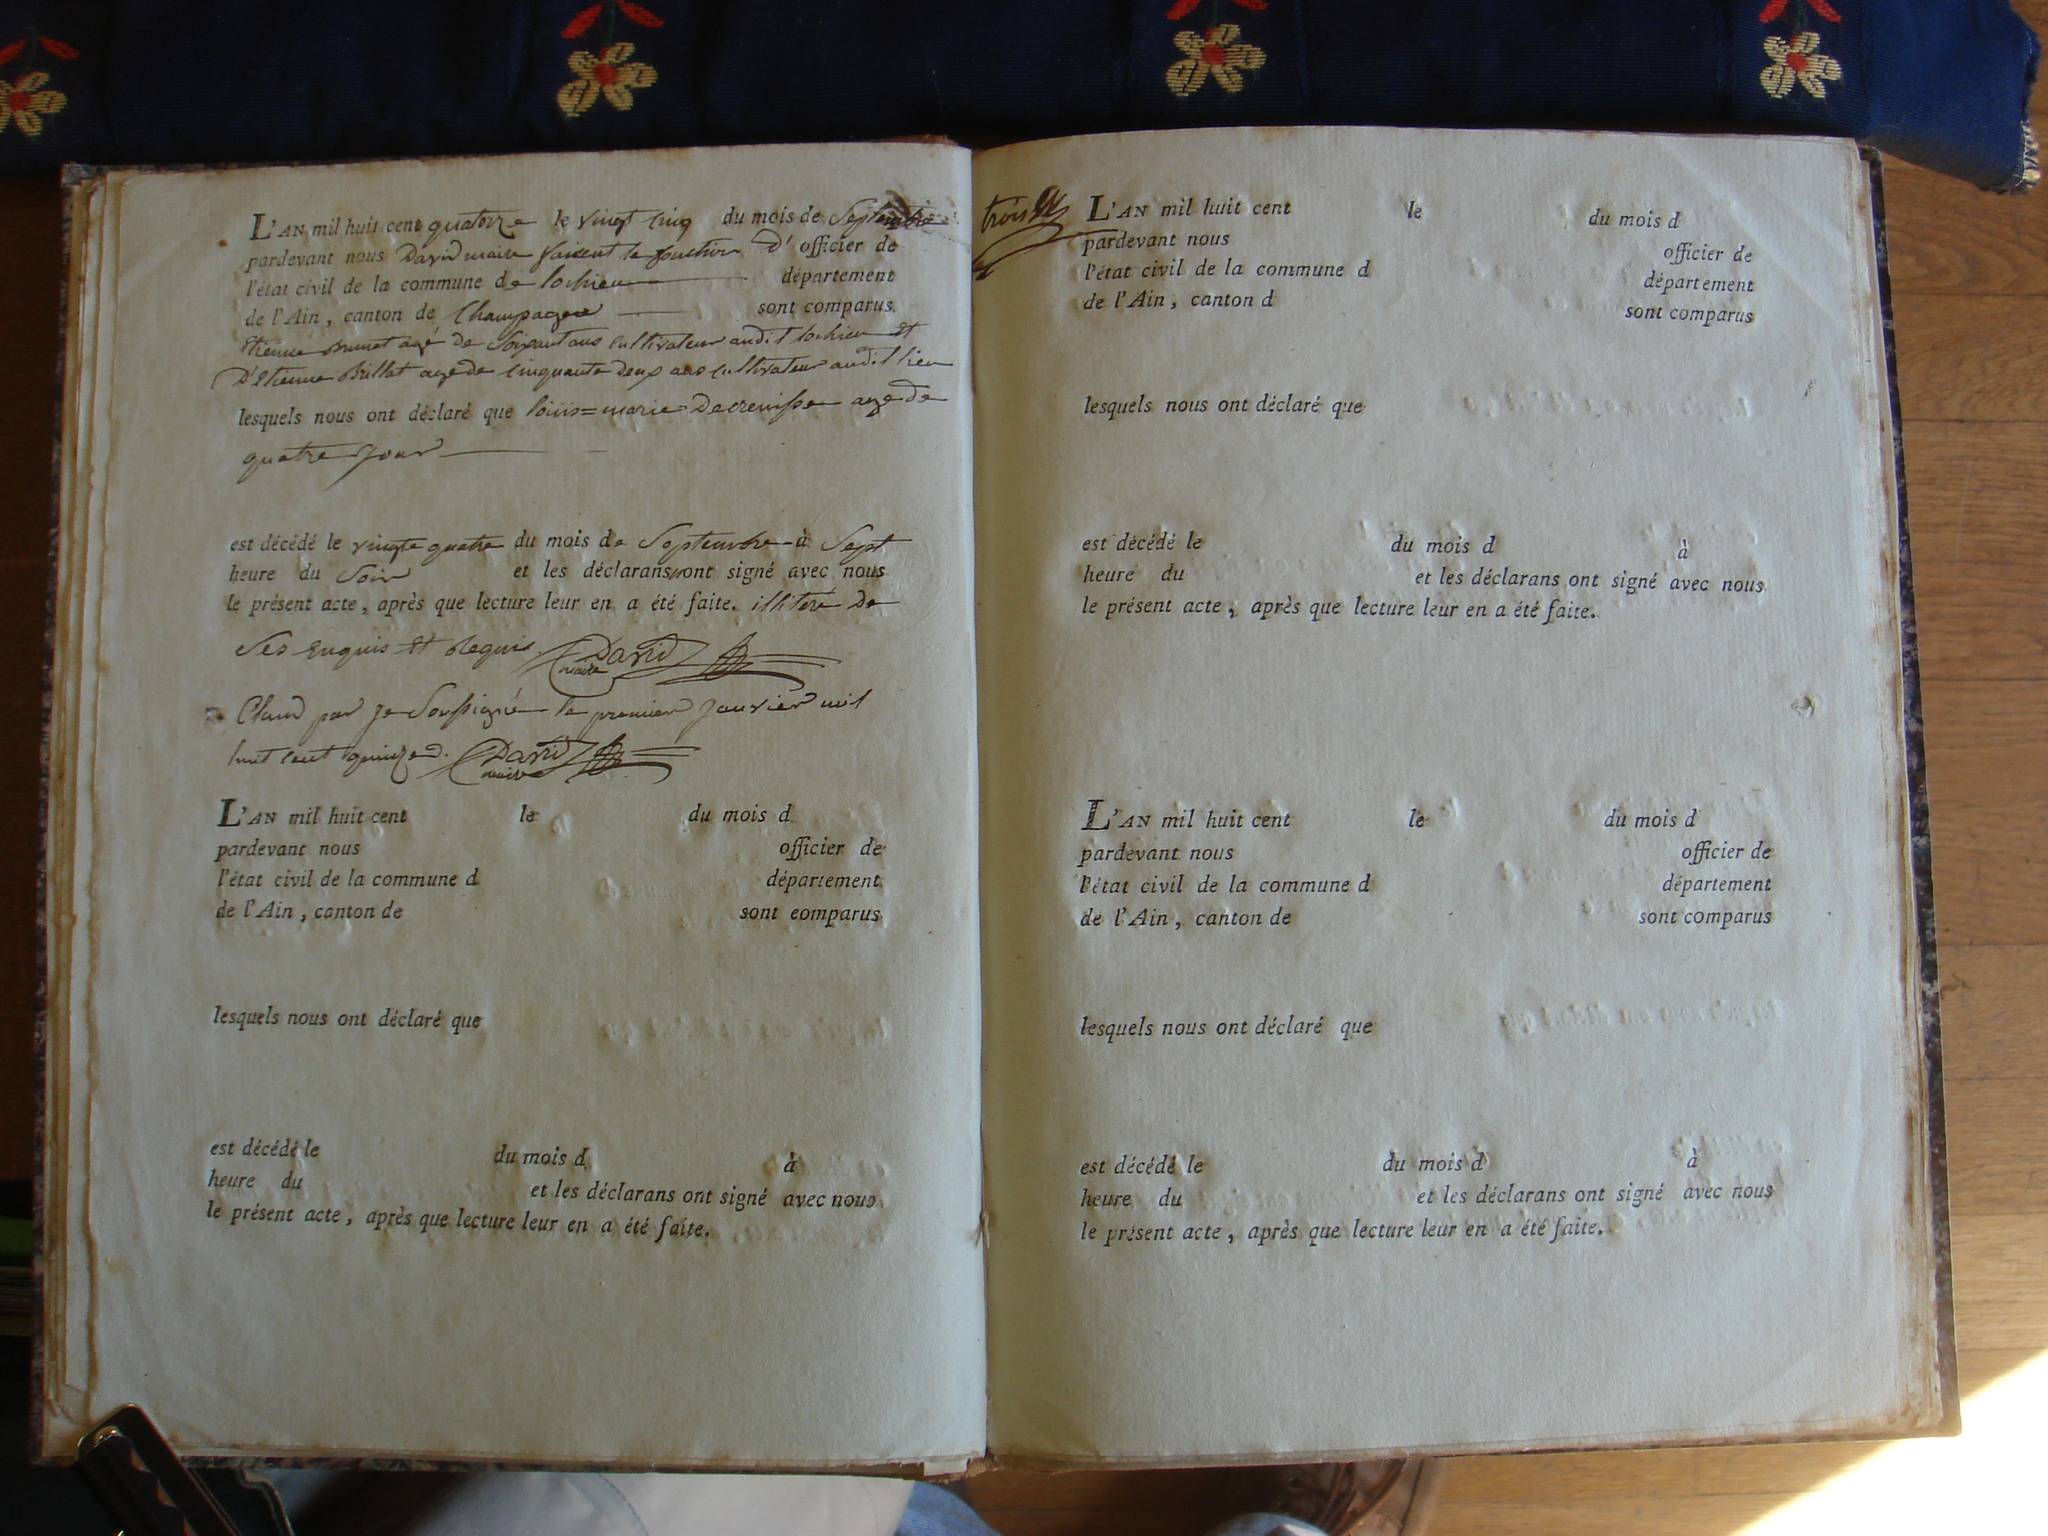 L'AN mil huit cent quatorze le vingt cinq du mois de Septembre
pardevant nous David maire faisent le fonction D' officier de
l'état civil de la commune de lochieu département
de l'Ain, canton de Champagne sont comparus
Etienne Brunet agé de Soixant ans cultivateur audit lochieu Et
D'Etienne Billat age de cinquante deux ans cultivateur audit lieu
lesquels nous ont déclaré que loüis=marie Decrenisse age de
quatre jour
est décédé le vingte quatre du mois de Septembre à Sept
heure du Soir et les déclarans ont signé avec nous
le présent acte, après que lecture leur en a été faite. illitéré de
Ses Enquis Et Requis. David
maire
Claud par je Soussigné le premier janvier mil
huit cent quinze. David
maire
L'AN mil huit cent le du mois d
pardevant nous officier de
l'état civil de la commune d département
de l'Ain, canton de sont comparus
lesquels nous ont déclaré que
est décédé le du mois d à
heure du et les déclarans ont signé avec nous
le présent acte, après que lecture leur en a été faite.
trois
L'AN mil huit cent le du mois d
pardevant nous officier de
l'état civil de la commune d département
de l'Ain, canton d sont comparus
lesquels nous ont déclaré que
est décédé le du mois d à
heure du et les déclarans ont signé avec nous
le présent acte, après que lecture leur en a été faite.
L'AN mil huit cent le du mois d
pardevant nous officier de
l'état civil de la commune d département
de l'Ain, canton de sont comparus
lesquels nous ont déclaré que
est décédé le du mois d à
heure du et les déclarans ont signé avec nous
le présent acte, après que lecture leur en a été faite.